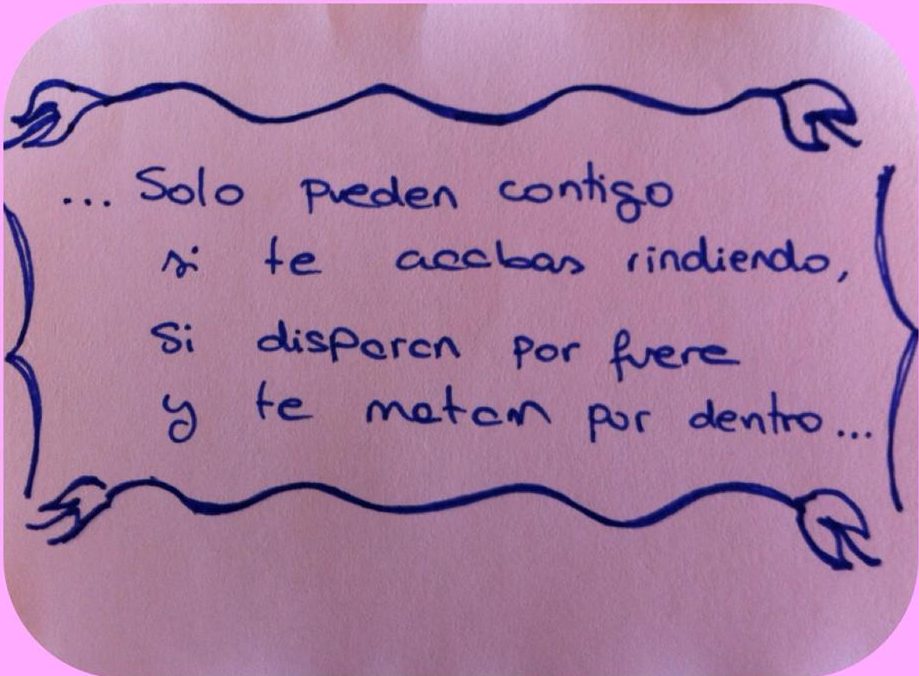 ... Solo pueden contigo
si te acabas rindiendo,
si disparan por fuera
y te matan por dentro...